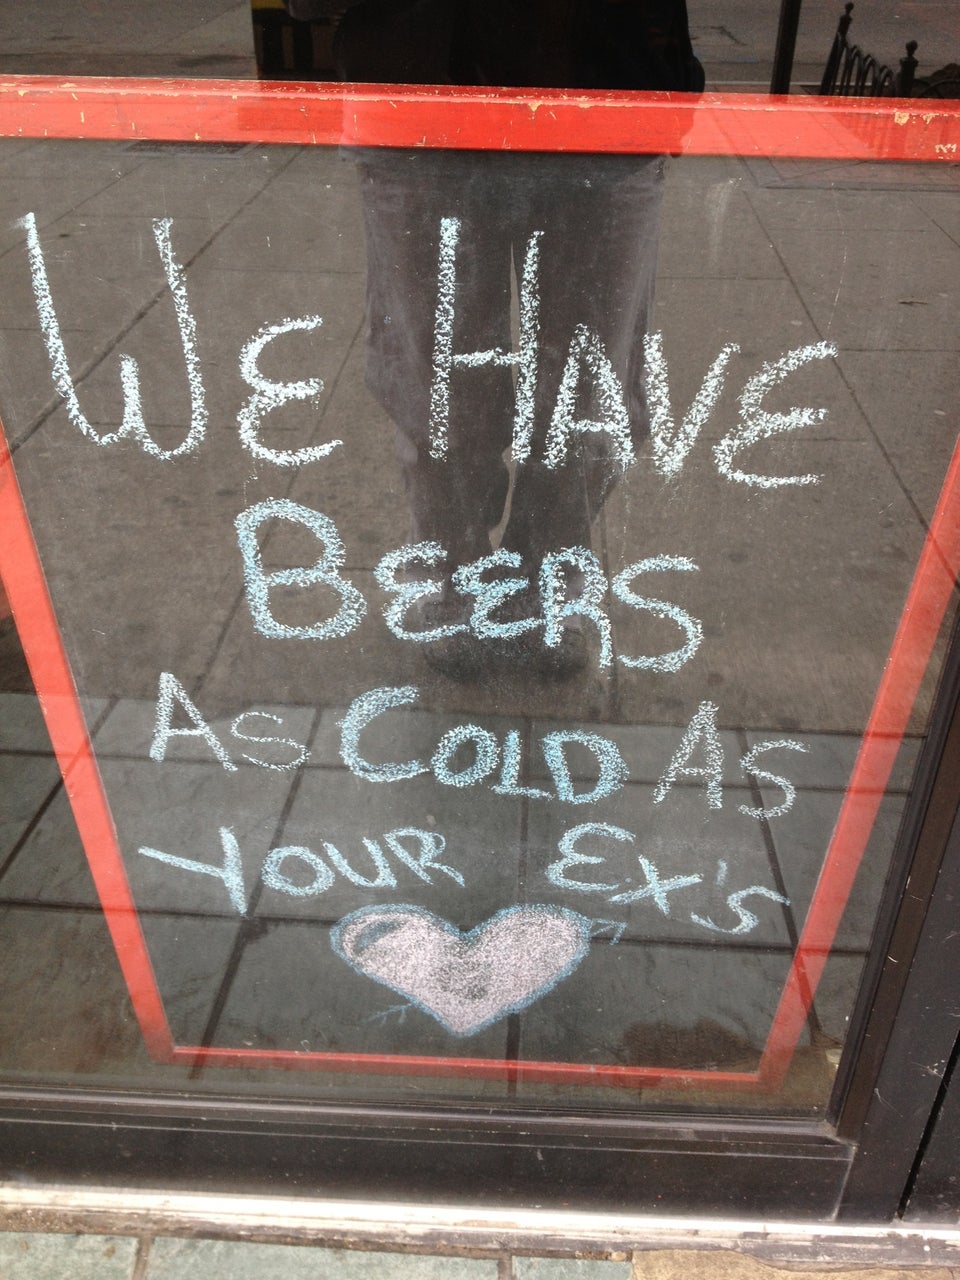 We Have
Beers
As Cold As
Your Ex's